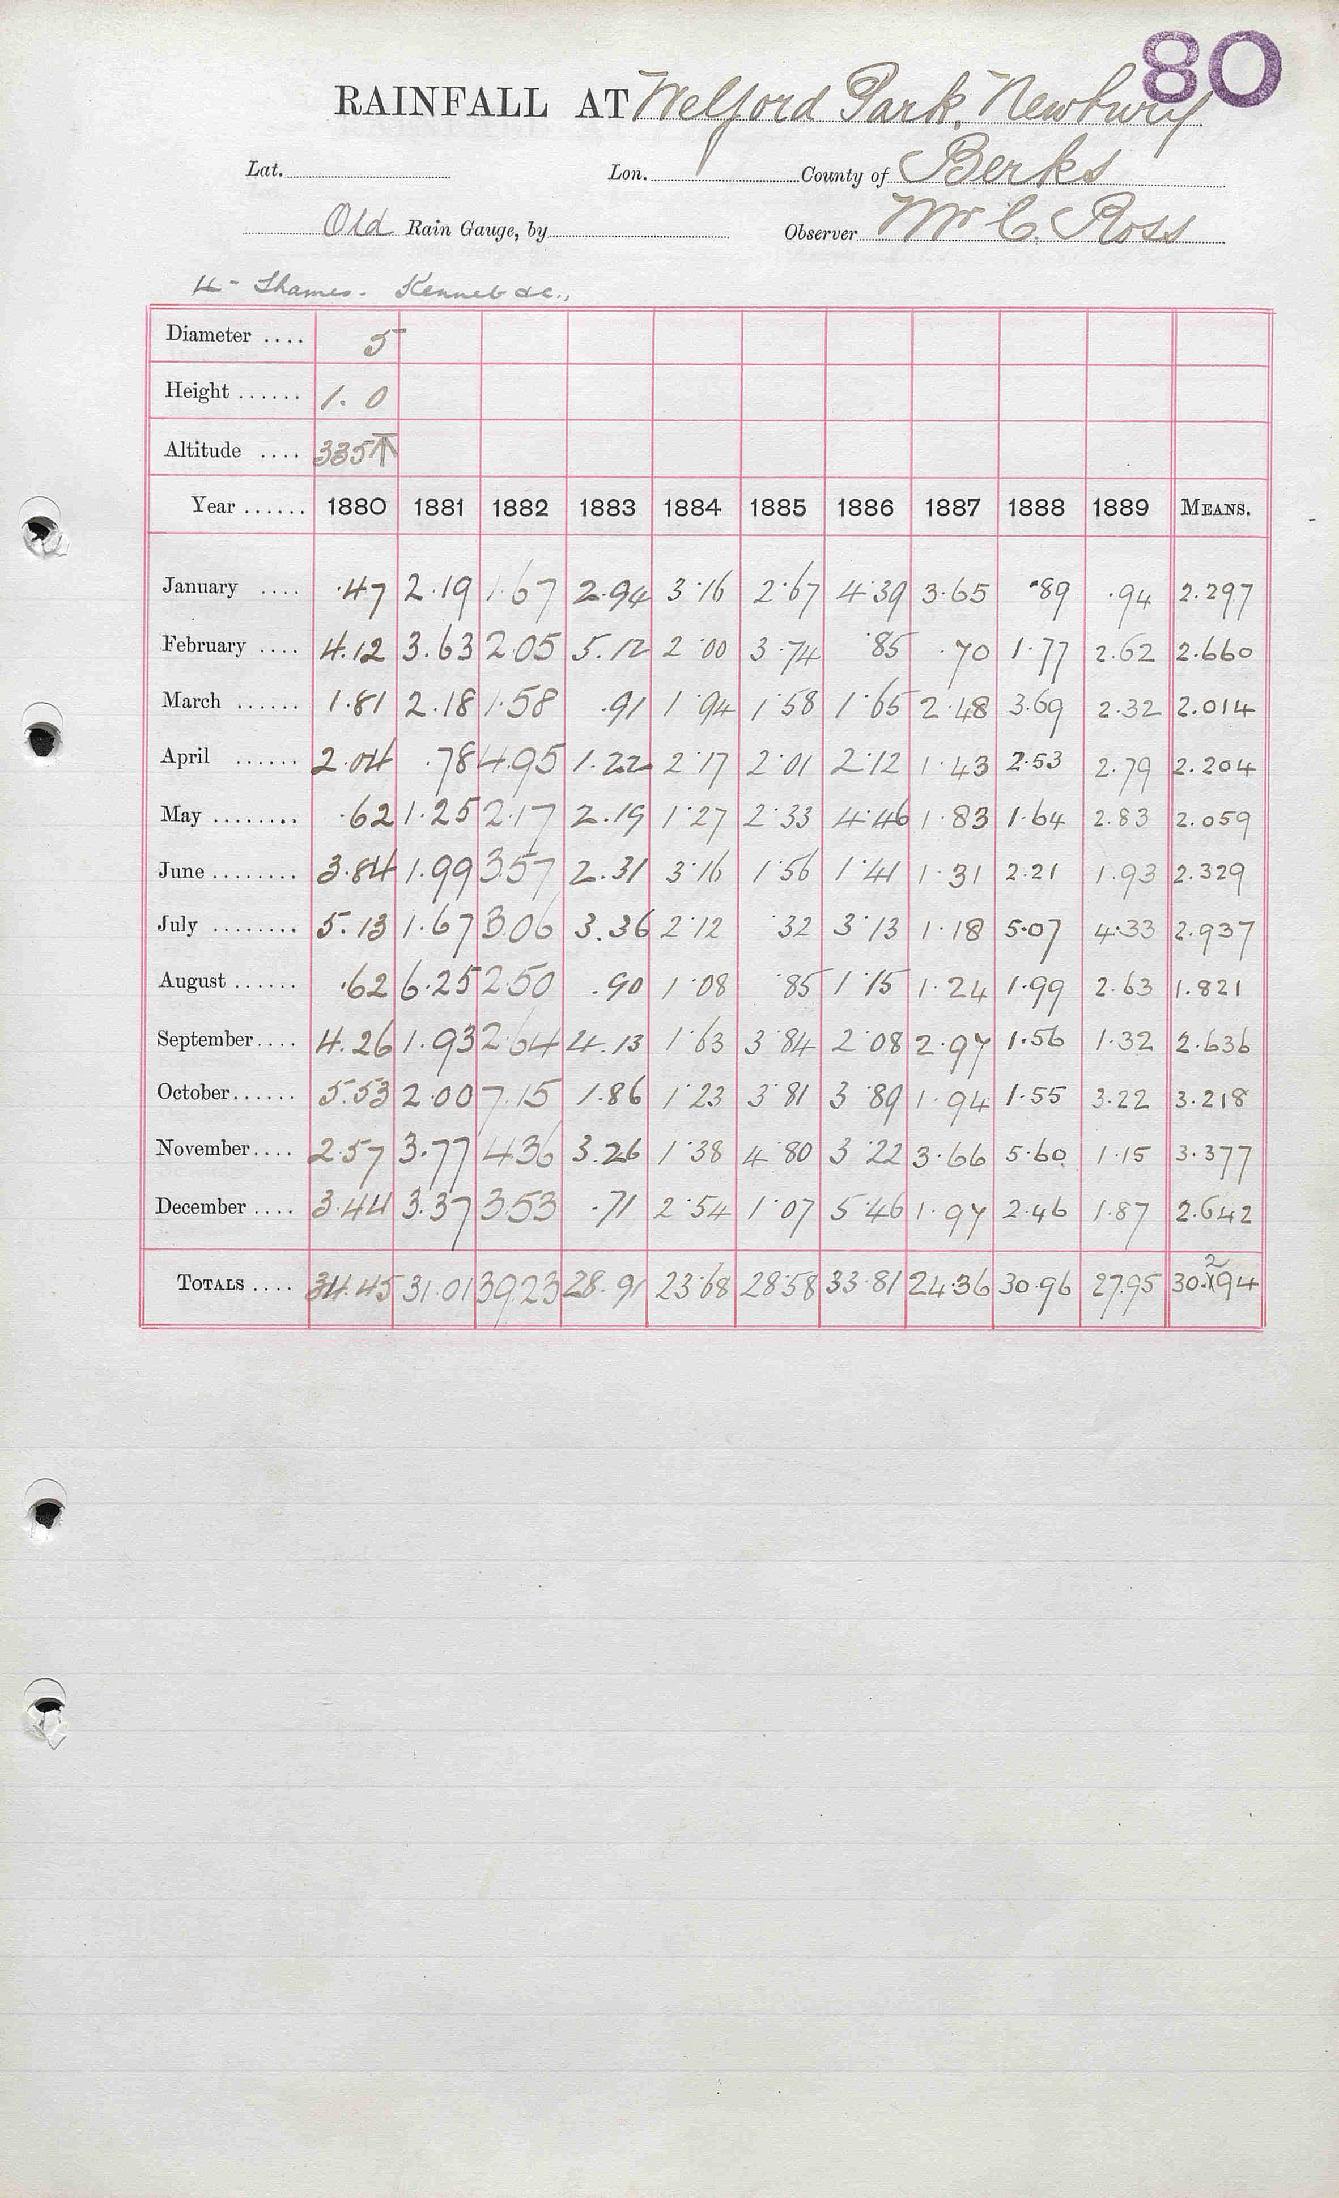 80
RAINFALL AT Welford Park, Newbury
Lat. Lon. County of Berks
Old Rain Gauge, by Observer Mr C. Ross
4 - Thames - Kennet &c.,
Diameter .... 5
Height ...... 1. 0
Altitude .... 335 T
Year ...... 1880 1881 1882 1883 1884 1885 1886 1887 1888 1889 MEANS.
January .... .47 2.19 1.67 2.94 3.16 2.67 4.39 3.65 .89 .94 2.297
February .... 4.12 3.63 2.05 5.12 2.00 3.74 .85 .70 1.77 2.62 2.660
March ...... 1.81 2.18 1.58 .91 1.94 1.58 1.65 2.48 3.69 2.32 2.014
April ...... 2.04 .78 4.95 1.22 2.17 2.01 2.12 1.43 2.53 2.79 2.204
May ........ .62 1.25 2.17 2.19 1.27 2.33 4.46 1.83 1.64 2.83 2.059
June ........ 3.84 1.99 3.57 2.31 3.16 1.56 1.41 1.31 2.21 1.93 2.329
July ........ 5.13 1.67 3.06 3.36 2.12 .32 3.13 1.18 5.07 4.33 2.937
August ...... .62 6.25 2.50 .90 1.08 .85 1.15 1.24 1.99 2.63 1.821
September.... 4.26 1.93 2.64 4.13 1.63 3.84 2.08 2.97 1.56 1.32 2.636
October...... 5.53 2.00 7.15 1.86 1.23 3.81 3.89 1.94 1.55 3.22 3.218
November.... 2.57 3.77 4.36 3.26 1.38 4.80 3.22 3.66 5.60 1.15 3.377
December .... 3.44 3.37 3.53 .71 2.54 1.07 5.46 1.97 2.46 1.87 2.642
TOTALS .... 34.45 31.01 39.23 28.91 23.68 28.58 33.81 24.36 30.96 27.95 30.294